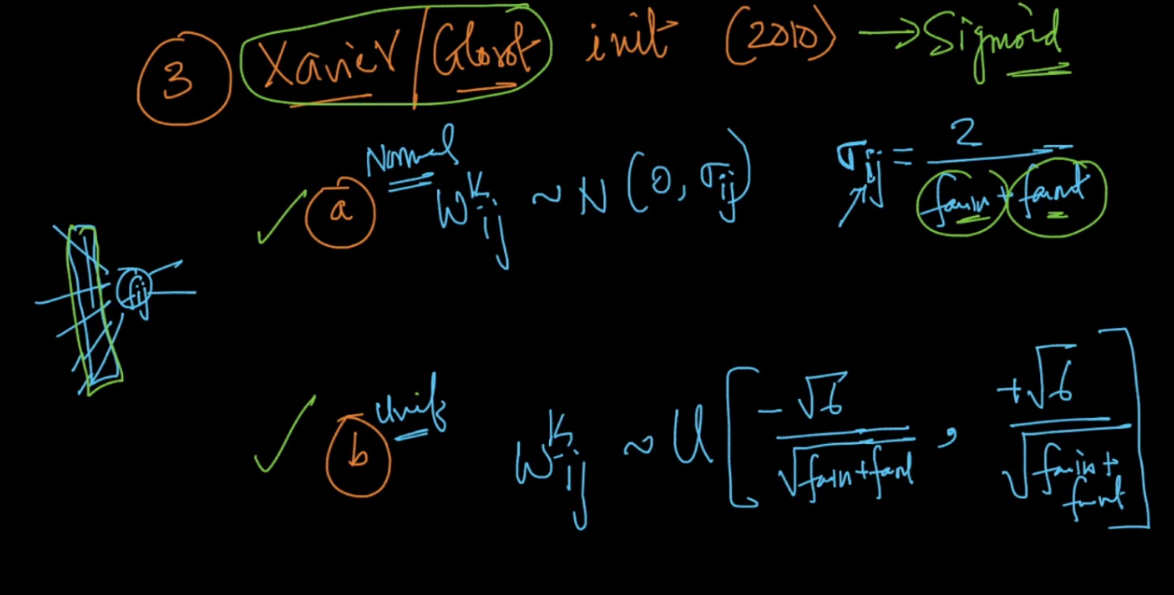 3 Xavier/Glorot init (2010) → Sigmoid
a Normal W^k_ij ~ N (0, σ_ij) σ_ij = 2 / (fanin + fanout)
f_ij
b Unif W^k_ij ~ U [ -√6 / √(fanin + fanout) , +√6 / √(fanin + fanout) ]